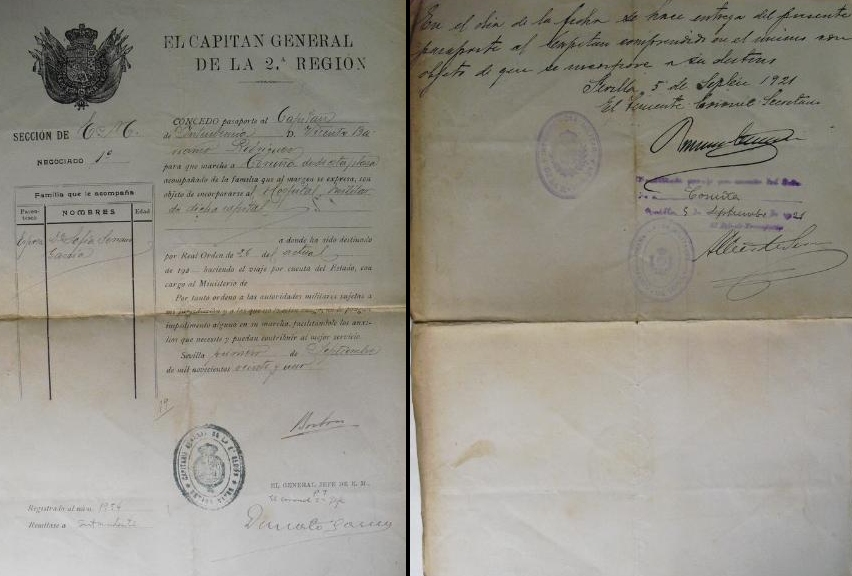 EL CAPITAN GENERAL
DE LA 2.ª REGION
SECCIÓN DE
NEGOCIADO 1º
Familia que le acompaña
Paren-tesco NOMBRES Edad
esposa Dª Sofia Serrano
Garcia
CONCEDO pasaporte al Capitan
de Intendencia D. Vicente
para que marche a Coruña desde esta plaza
acompañado de la familia que al margen se expresa, con
objeto de incorporarse al Hospital militar
de dicha capital
a donde ha sido destinado
por Real Orden de 26 del actual
de 190 haciendo el viaje por cuenta del Estado, con
cargo al Ministerio de
Por tanto ordeno a las autoridades militares sujetas a
mi jurisdicción y a las que no lo están ruego, no le pongan
impedimento alguno en su marcha, facilitándole los auxi-
lios que necesite y puedan contribuir al mejor servicio.
Sevilla primero de Septiembre
de mil novecientos veinte y uno
Borbon
CAPITANIA GENERAL DE LA 2ª REGION
EL GENERAL JEFE DE E. M.
El coronel 2º Jefe
Registrado al núm. 1954
Remítase a
En el dia de la fecha se hace entrega del presente
pasaporte al Capitan comprendido en el mismo con
objeto de que se incorpore a su destino
Sevilla 5 de Sepbre 1921
El Teniente Coronel Secretario
Coruña
Sevilla 5 de Septiembre de 1921